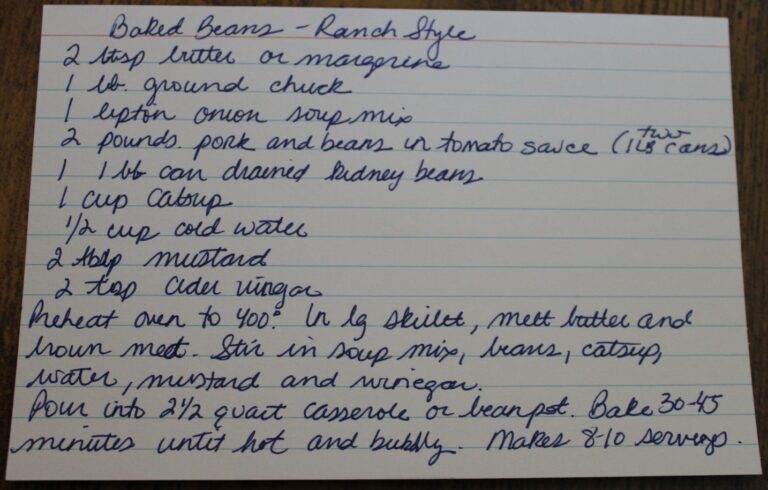 Baked Beans - Ranch Style
2 tbsp butter or margerine
1 lb. ground chuck
1 lipton onion soup mix
2 pounds pork and beans in tomato sauce (two 1LB cans)
1 1 lb can drained kidney beans
1 cup catsup
1/2 cup cold water
2 tbsp mustard
2 tsp cider vinegar
Preheat oven to 400°. In lg skillet, melt butter and
brown meat. Stir in soup mix, beans, catsup,
water, mustard and vinegar.
Pour into 2 1/2 quart casserole or beanpot. Bake 30-45
minutes until hot and bubbly. Makes 8-10 servings.